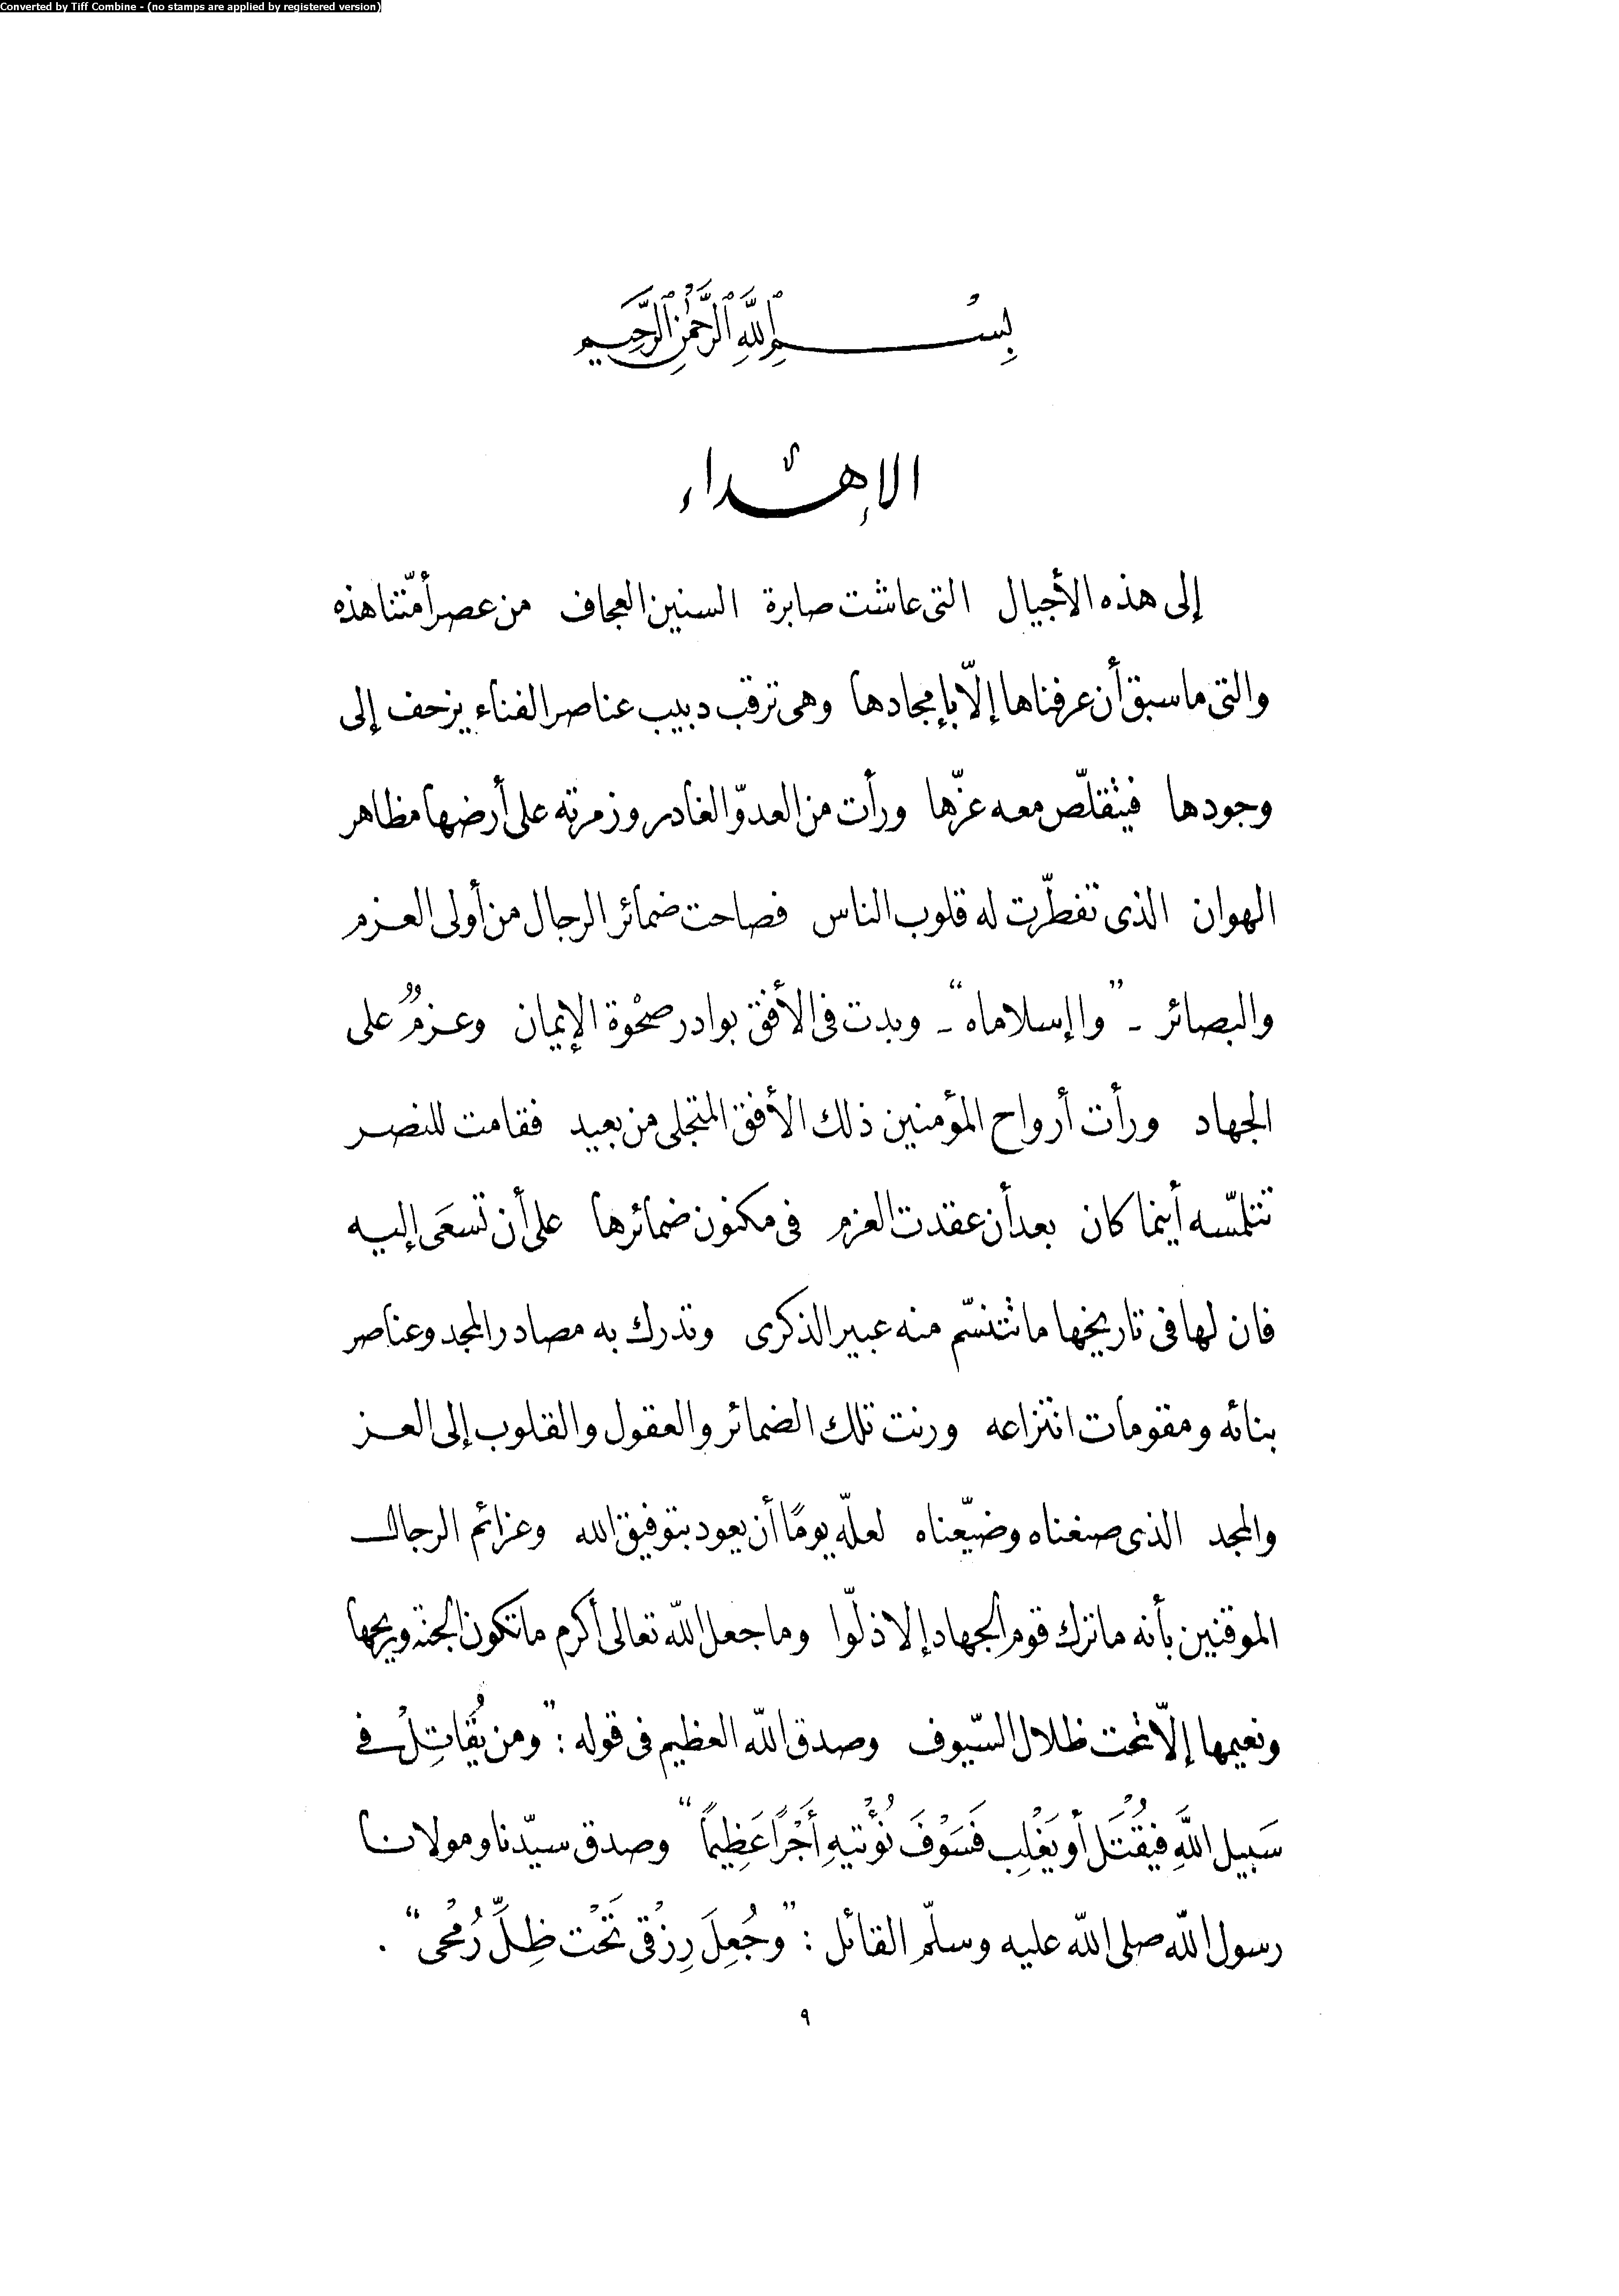 Converted by Tiff Combine - (no stamps are applied by registered version)
بِسْمِ اللَّهِ الرَّحْمَٰنِ الرَّحِيمِ
الإهداء
إلى هذه الأجيال التى عاشت صابرة السنين العجاف من عصر أمّتنا هذه
والتى ما سبق أن عرفناها إلّا بإمجادها وهى ترقب دبيب عناصر الفناء يزحف إلى
وجودها فيتقلّص معه عزّها ورأت من العدوّ الغادر وزمرته على أرضها مظاهر
الهوان الذى تفطّرت له قلوب الناس فصاحت ضمائر الرجال من أولى العزم
والبصائر - "واإسلاماه" - وبدت فى الأفق بوادر صحْوة الإيمان وعزمٌ على
الجهاد ورأت أرواح المؤمنين ذلك الأفق المتجلى من بعيد فقامت للنصر
تتلمّسه أينما كان بعد أن عقدت العزم فى مكنون ضمائرها على أن تسعَى إليه
فان لها فى تاريخها ما تتنسّم منه عبير الذكرى وتدرك به مصادر المجد وعناصر
بنائه ومقومات انتزاعه ورنت تلك الضمائر والعقول والقلوب إلى العز
والمجد الذى صنعناه وضيّعناه لعلّه يومًا أن يعود بتوفيق الله وعزائم الرجال
الموقنين بأنه ما ترك قوم الجهاد إلا ذلّوا وما جعل اللّه تعالى أكرم ما تكون الجنة وريحها
ونعيمها إلّا تحت ظلال السّيوف وصدق اللّه العظيم فى قوله : "ومن يُقَاتِلْ في
سَبِيل اللَّهِ فيُقْتَل أو يَغْلِب فَسَوْفَ نُؤْتيهِ أَجْرًا عَظِيمًا" وصدق سيّدنا ومولانا
رسول اللّه صلى اللّه عليه وسلّم القائل : "وجُعِلَ رِزْقى تَحْت ظِلِّ رُمْحى" .
٩